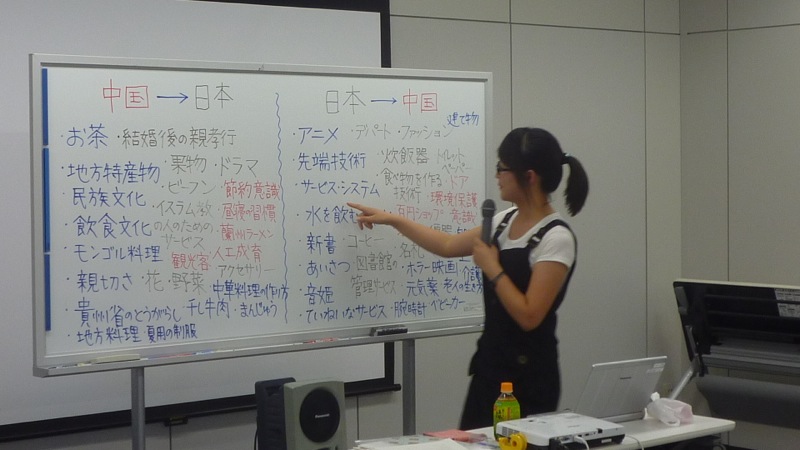 中国→日本
・お茶・結婚後の親孝行
・地方特産物・果物・ドラマ
・民族文化・ビーフン・節約意識
・飲食文化・イスラム教の人のためのサービス・昼寝の習慣
・モンゴル料理・観光客・蘭州ラーメン・人工成育
・親切さ・花・野菜・アクセサリー・中華料理の作り方
・貴州省のとうがらし・干し牛肉・まんじゅう
・地方料理・夏用の制服
日本→中国
・アニメ・デパート・ファッション・建て物
・先端技術・炊飯器・トイレットペーパー
・サービス・システム・食べ物を作る技術・ドア・環境保護
・水を飲む・百円ショップ・意識
・新書・コーヒー・名札
・あいさつ・図書館の管理サービス・ホラー映画・介護
・音姫・元気薬・老人の生き方
・ていねいなサービス・腕時計・ベビーカー
Panasonic